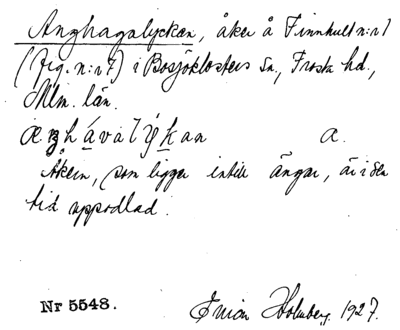 Änghagalyckan, åker å Finnhult n:r 1
(fig. n:r 7) i Bosjöklosters sn., Frosta hd.,
Mlm. län.
a.
Åkern, som ligger intill ängar, är i sen
tid uppodlad.
Nr 5548.
Holmberg. 1927.